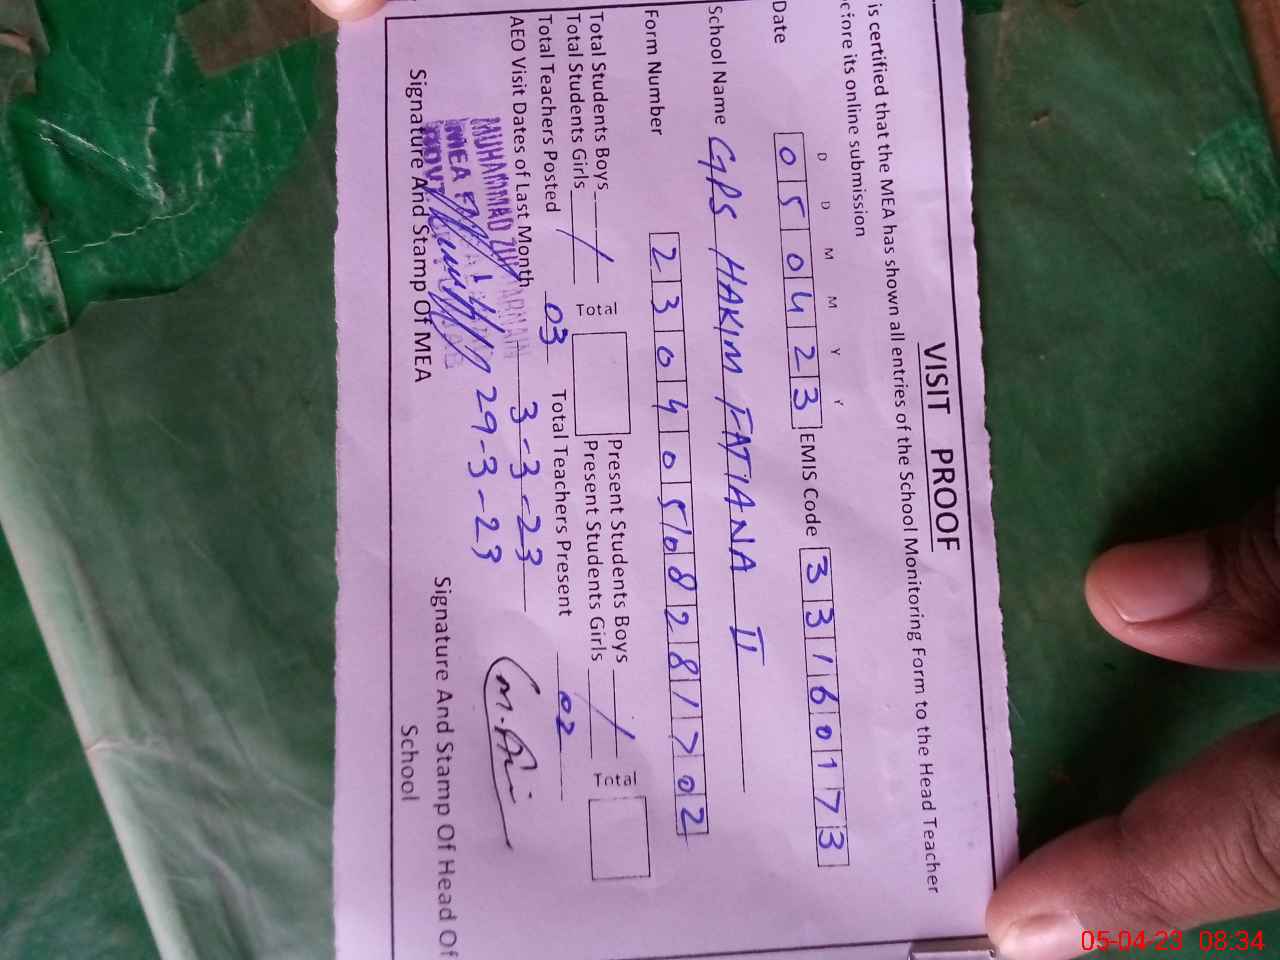 VISIT PROOF
is certified that the MEA has shown all entries of the School Monitoring Form to the Head Teacher
efore its online submission
D D M M Y Y
Date 050423 EMIS Code 33160173
School Name GPS HAKIM FATIANA II
Form Number 23040508281702
Total Students Boys / Total Present Students Boys / Total
Total Students Girls Present Students Girls
Total Teachers Posted 03 Total Teachers Present 02
AEO Visit Dates of Last Month 3-3-23
29-3-23
MUHAMMAD
MEA
Signature And Stamp Of MEA
Signature And Stamp Of Head Of
School
05-04-23 08:34